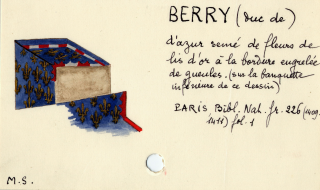 BERRY (duc de)
d'azur semé de fleurs de
lis d'or à la bordure engrelée
de gueules. (sur la banquette
inférieure de ce dessin)
PARIS Bibl. Nat. fr. 226 (1409.
1411) fol. 1
M.S.